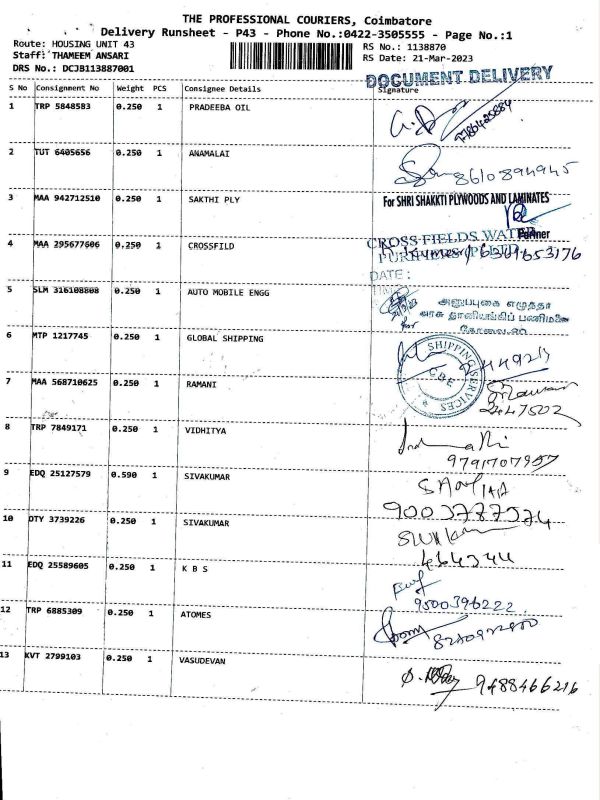 THE PROFESSIONAL COURIERS, Coimbatore
Delivery Runsheet - P43 - Phone No.:0422-3505555 - Page No.:1
Route: HOUSING UNIT 43 RS No.: 1138870
Staff: THAMEEM ANSARI RS Date: 21-Mar-2023
DRS No.: DCJB113887001
DOCUMENT DELIVERY
S No Consignment No Weight PCS Consignee Details Signature
1 TRP 5848583 0.250 1 PRADEEBA OIL
2 TUT 6405656 0.250 1 ANAMALAI 8610894945
3 MAA 942712510 0.250 1 SAKTHI PLY For SHRI SHAKKTI PLYWOODS AND LAMINATES
Partner
4 MAA 295677606 0.250 1 CROSSFILD CROSS FIELDS WATER
PURIFIERS (P) LTD. 6301653176
DATE:
TIME
5 SLM 316108808 0.250 1 AUTO MOBILE ENGG அனுப்புகை எழுத்தர்
அரசு தானியங்கிப் பணிமனை
கோவை
6 MTP 1217745 0.250 1 GLOBAL SHIPPING SHIPPING SERVICES
CBE
7 MAA 568710625 0.250 1 RAMANI
2447502
8 TRP 7849171 0.250 1 VIDHITYA
9791707957
9 EDQ 25127579 0.590 1 SIVAKUMAR
10 DTY 3739226 0.250 1 SIVAKUMAR
11 EDQ 25589605 0.250 1 K B S
9500396222
12 TRP 6885309 0.250 1 ATOMES
13 KVT 2799103 0.250 1 VASUDEVAN 9488466216